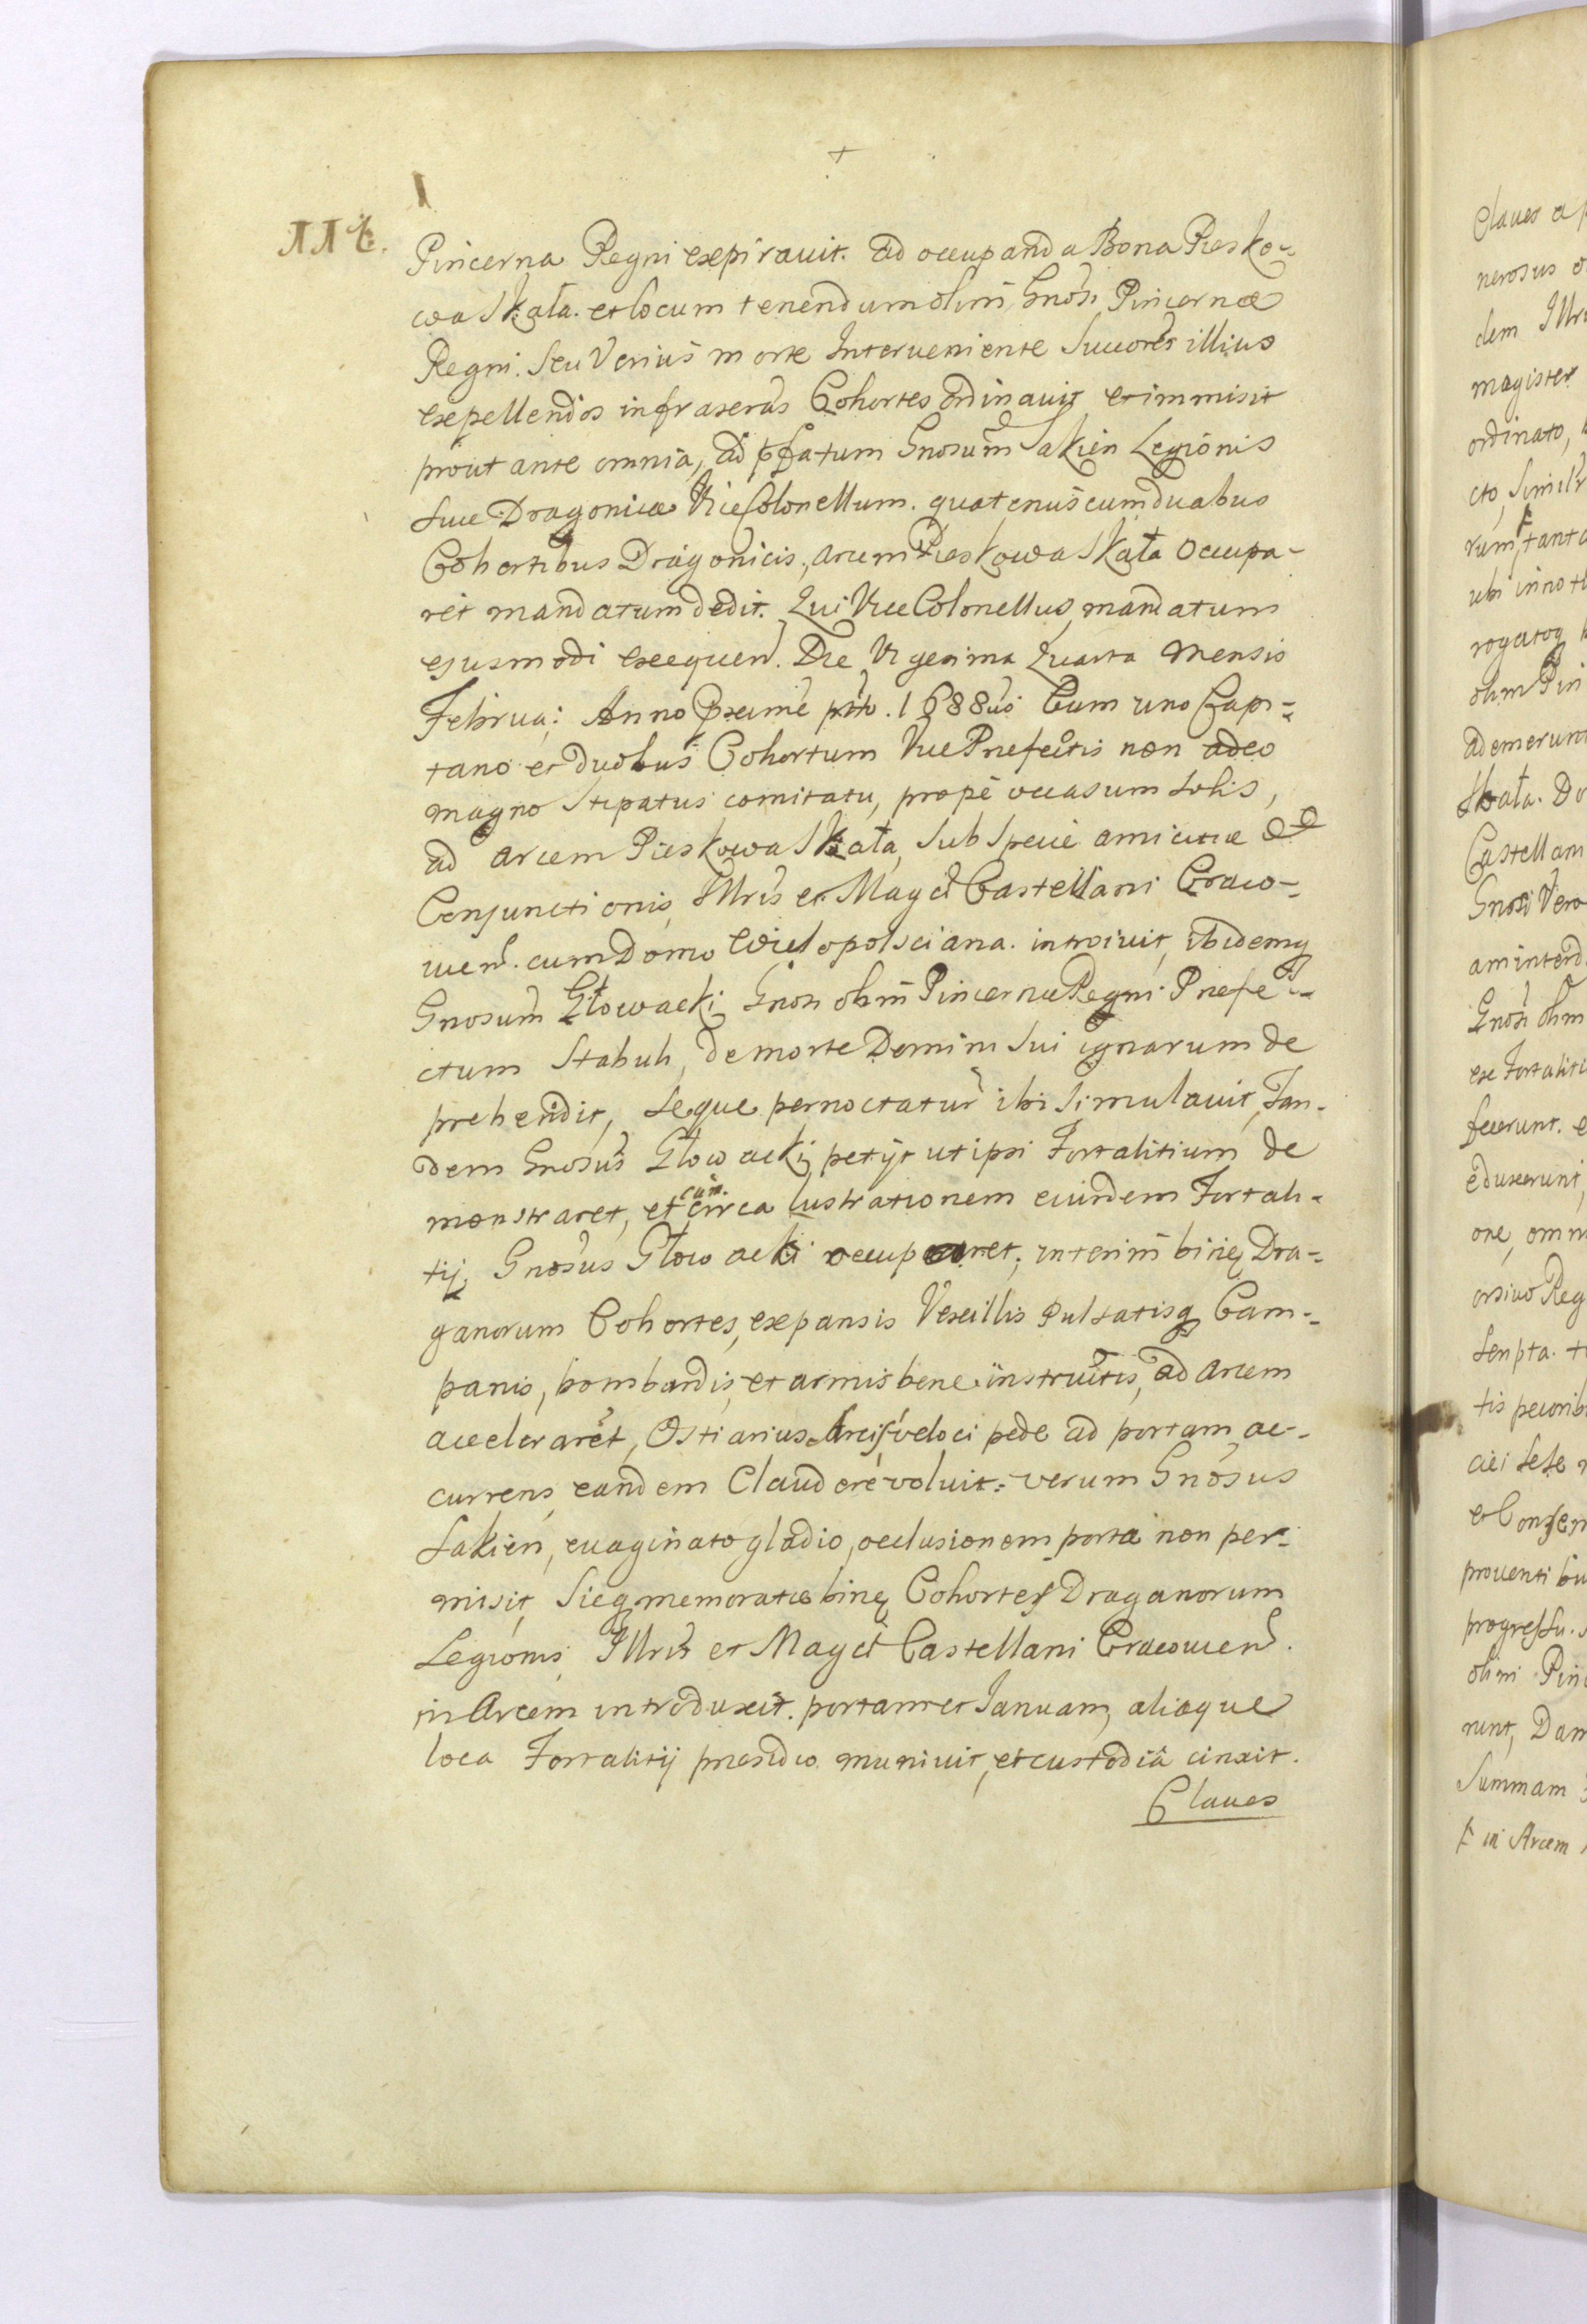 +
Pincerna Regni expirauit. ad occupanda Bona Piesko-
wa Skała. et locum tenendum olim Gnosi Pincernæ
Regni. Seu Verius morte Interueniente Succores illius
expellendos infrascrus Cohortes ordinauit et immisit
prout ante omnia, ad pfatum Gnosum Sakien Legionis
suæ Dragonicæ Vice Colonellum. quatenus cum duabus
Cohortibus Dragonicis, arcem Pieskowa Skała occupa-
ret mandatum dedit. Qui Vice Colonellus mandatum
ejusmodi exequen. Die Vigesima Quarta Mensis
Februa: Anno Proxime ptto. 1688us Cum uno Capi-
tano et duobus Cohortum Vice Præfectis non adeo
magno Stipatus comitatu, propè occasum Solis,
ad arcem Pieskowa Skała, Sub Specie amicitiæ et
Conjunctionis, Illris et Magci Castellani Craco-
uien. cum Domo Wielopolsciana. introiuit, ibidemq
Gnosum Głowacki Gnosi olim Pincernæ Regni Præfe-
ctum Stabuli, de morte Domini Sui ignarum de
prehendit, Seque pernoctatur ibi Simulauit, Tan-
dem Gnosus Głowacki petijt ut ipsi Fortalitium de
monstraret, et cum circa lustrationem eiusdem Fortali-
tij, Gnosus Głowacki occuparet, interim binę Dra-
ganorum Cohortes, expansis Vexillis pulsatisq Cam-
panis, bombardis, et armis bene instructis, ad arcem
acceleraret, Ostiarius Arcis veloci pede ad portam ac-
currens eandem Claudere voluit: verum Gnosus
Sakien, euaginato gladio, occlusionem portæ non per-
misit, Sicq memoratæ binę Cohortes Draganorum
Legionis Illris et Magci Castellani Cracouien.
in Arcem introduxit. portam et Januam, aliaque
loca Fortalitij præsidio muniuit, et custodiâ cinxit.
Claues
Claues a
nerosus
dem Illr
magister
ordinato,
cto, Simil
rum, tant
ubi innot
rogatoq
olim Pin
ademerunt
Skała. Do
Castellam
Gnosi Vero
am intend
Gnosi olim
ex Fortaliti
fecerunt.
eduxerunt,
ore, omn
orsiuo Reg
Senpta.
tis pecorib
ciei sese
et Consen
prouentibu
progressu.
olim Pin
runt, Dam
Summam
in Arcem